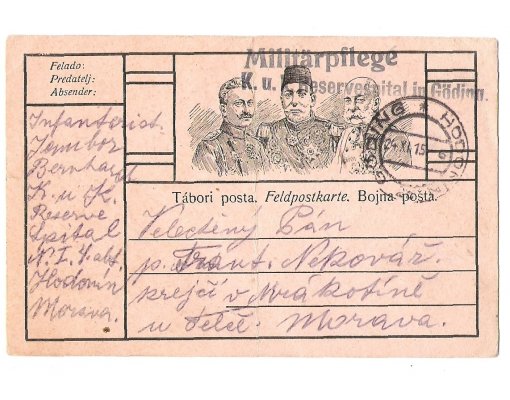 Felado:
Predatelj:
Absender:
Militärpflege
K. u. K. Reservespital in Göding.
GÖDING * HODONÍN
24.XI.15
Tábori posta. Feldpostkarte. Bojna pošta.
Infanterist
Bernhard
K. u. K.
Reserve
Spital
N. I. 4. abt.
Hodonín
Morava.
Velectěný Pán
p. Frant. Nekovář.
krejčí v Mrákotíně
u Telče. Morava.